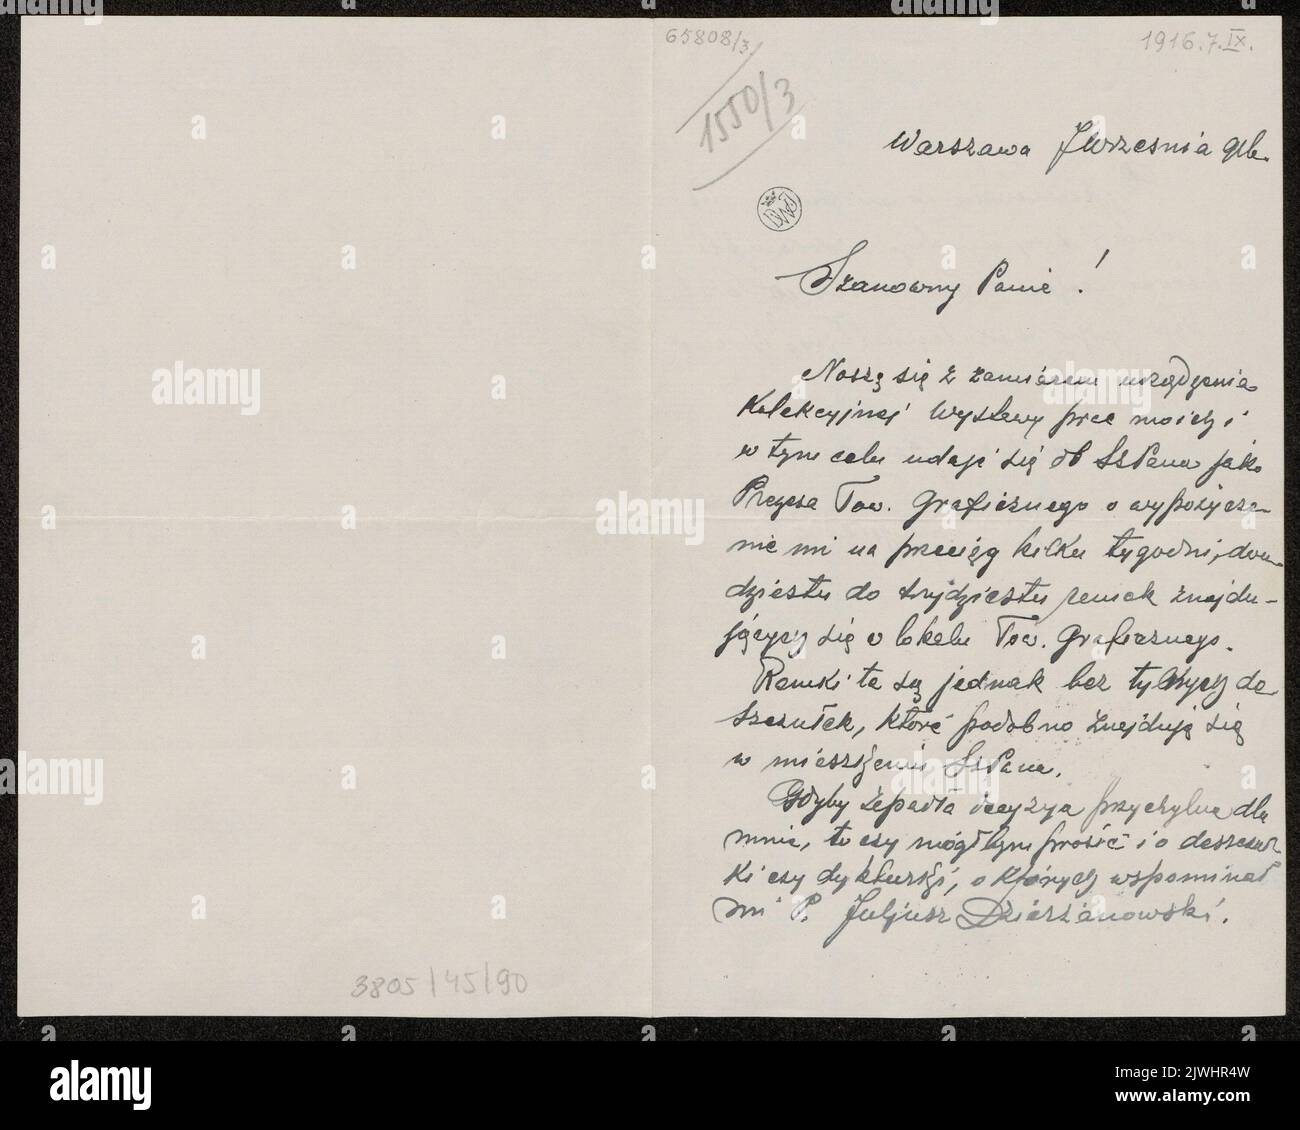 65808/3.
1916.7.IX.
1550/3
Warszawa 7 Września 916.
Szanowny Panie!
Noszę się z zamiarem urządzenia
Kolekcyjnej Wystawy prac moich i
w tym celu udaję się do SzPana jako
Prezesa Tow. Graficznego o wypożycze-
nie mi na przeciąg kilku tygodni, dwu-
dziestu do trzydziestu ramek znajdu-
jących się w lokalu Tow. Graficznego.
Ramki te są jednak bez tylnych de-
szczułek, które podobno znajdują się
w mieszkaniu SzPana.
Gdyby zapadła decyzya przychylna dla
mnie, to czy mógłbym prosić i o deszczuł-
ki czy dykturki, o których wspominał
mi P. Juljusz Dzierżanowski.
3805/45/90
alamy
alamy
alamy
alamy
alamy
alamy
Image ID: 2JWHR4W
www.alamy.com